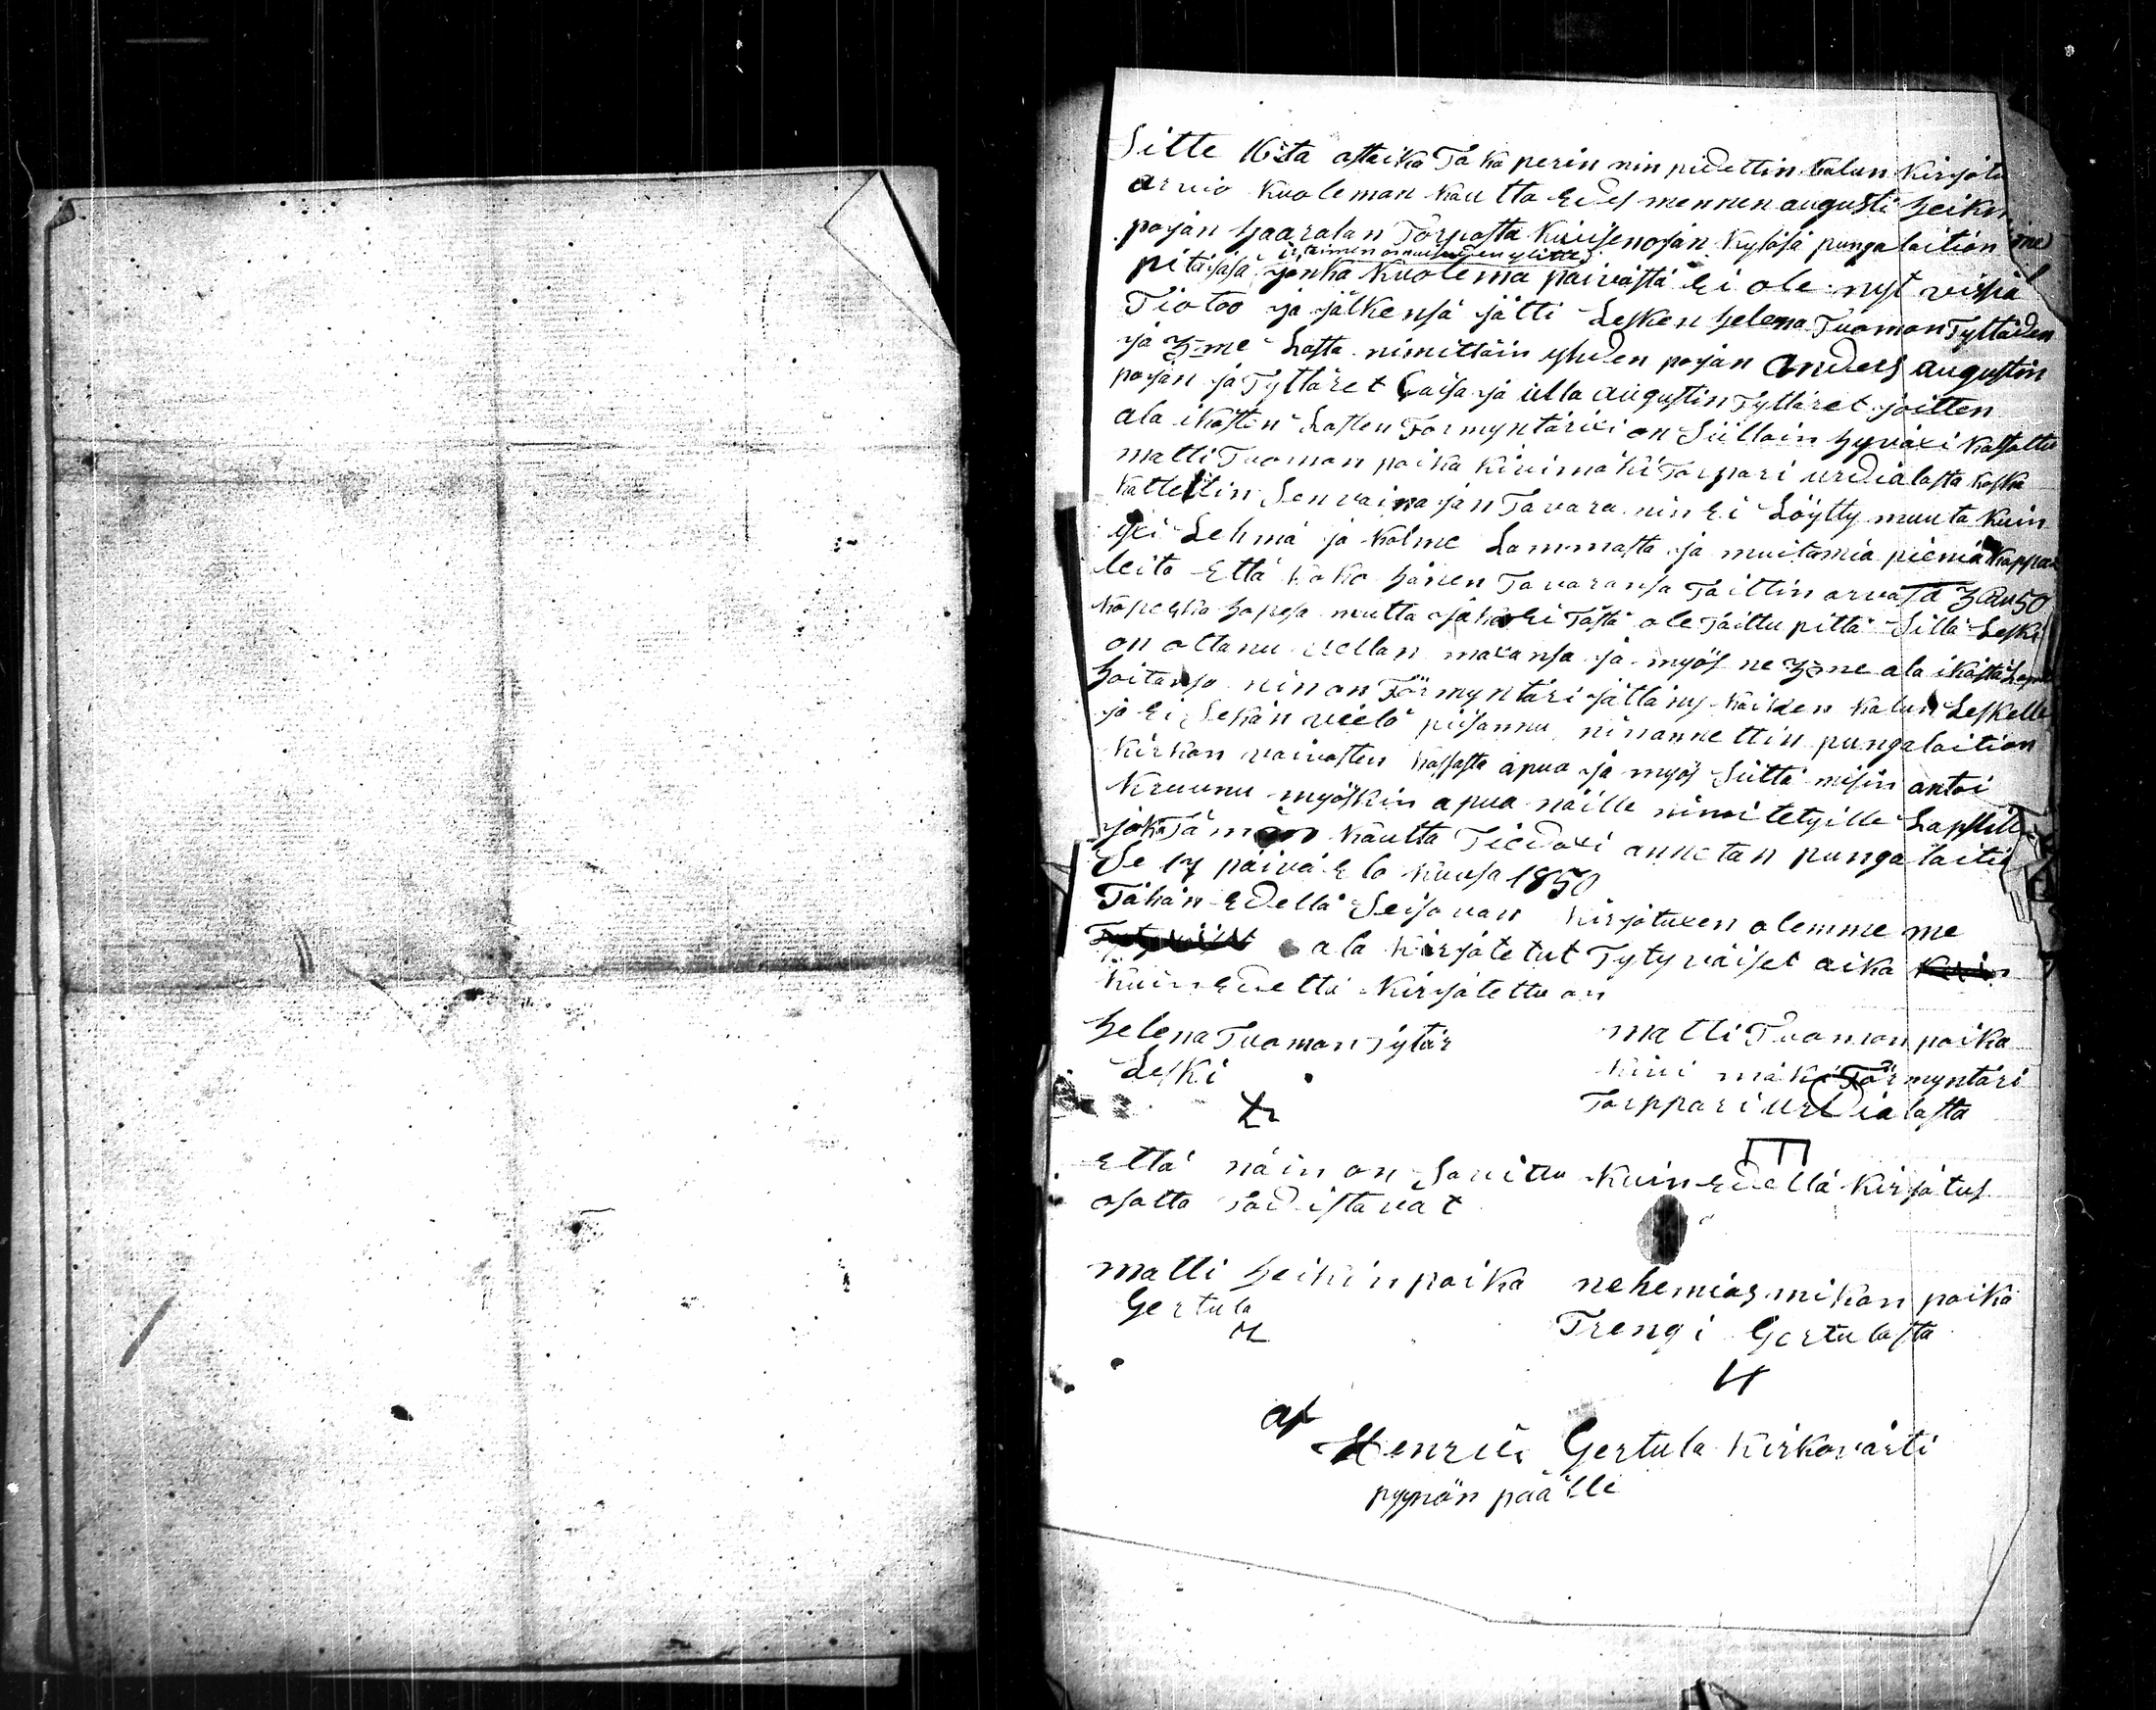 Sitte 16sta astaika Taka perin nin pidettin kalun kirjotu
arvio kuoleman kautta Edes mennen augusti heikin
pojan haaralan Torpasta kuusenojan kyläsä pungalaition
pitäjäsä jonka kuolema päivästä Ei ole nyt vissiä
Tiotoo ja jälkensä jätti Lesken helena Tuoman Tyttäden
ja 3-me Lasta nimittäin yhden pojan anders augustin
pojan ja Tyttäret Caisa ja ulla augustin Tyttäret joitten
ala ikästen Lasten Formyntärixi on Siilloin hyväxi katsottu
matti Tuoman poika kivimäki Torpari urdialasta koska
kattettin Sen vainajan Tavara nin Ei Löytty muuta kuin
yxi Lehmä ja kolme Lammasta ja muitamia pieniä kappa
leita Että koko hänen Tavaransa Taittin arvata 3 50
kopeka hopesa mutta jako Ei Tästä ole Täittu pittä Sillä Leski
on ottanu vellan maxansa ja myös ne 3me ala ikästä
hoitansa nin on Förmyntäri jättäny kaiken kalun Leskelle
ja Ei Sekän vielä piisannu nin annettin pungalaition
kirkon vaivasten kassasta apua ja myös Siittä misin antoi
kruunu myöskin apua näille nimitetyille Lapsille
joka Tämän kautta Tiedoxi annetan pungalaitis
Se 17 päivä Elo kuusa 1850
Tähän Edellä Seisovan kirjotuxen olemme me
ala kirjotetut Tytyväiset aika
kuin Edellä kirjotettu on
helena Tuoman Tytär
Leski
matti Tuoman poika
kivi mäki Förmyntäri
Torppari urdialasta
Että näin on Sovittu kuin Edellä kirjotus
osotta Todistavat
matti heikin poika
Gertula
nehemias mikon poika
Trengi Gertulasta
af
Henrik Gertula kirkovärti
pyynön päälle